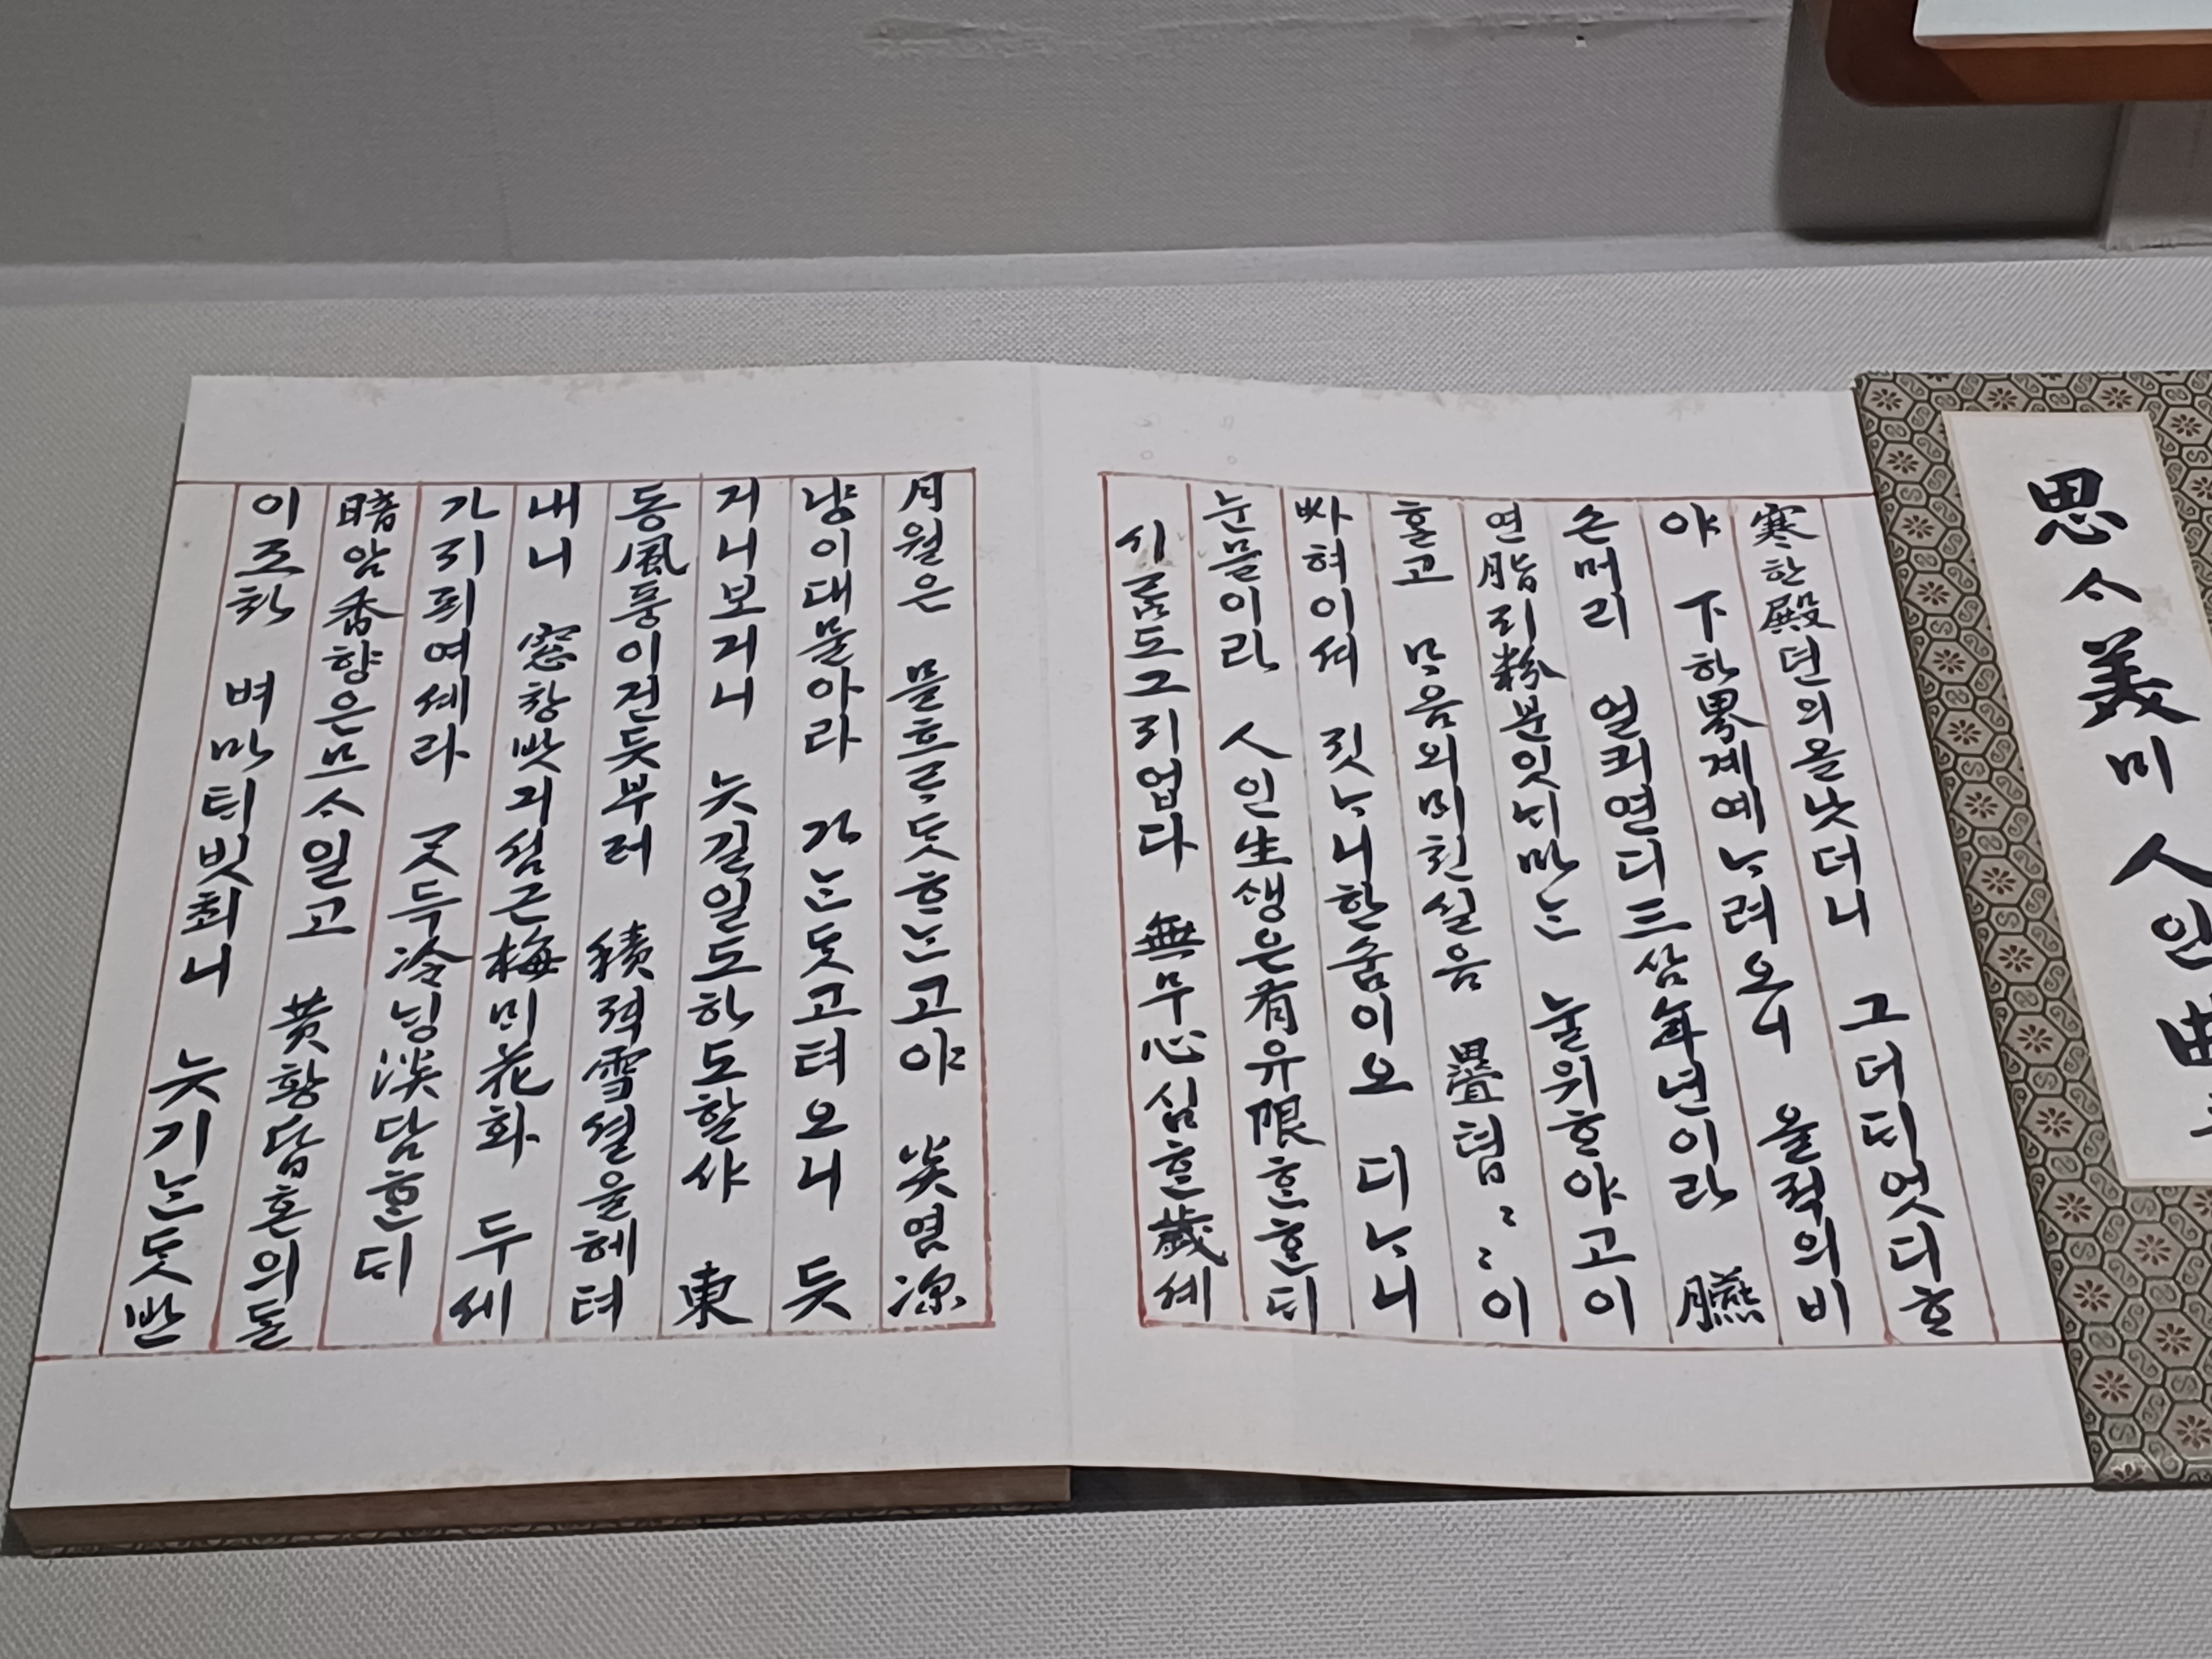 思ᄉ美미人인曲
寒한殿뎐의올낫더니 그더ᄃᆡ엇디ᄒᆞ
야 下하界계예ᄂᆞ려오니 올적의비
손머리 얼킈연디三삼年년이라 臙
연脂지粉분잇ᄂᆡ마ᄂᆞᆫ 눌위ᄒᆞ야고이
ᄒᆞᆯ고 ᄆᆞ음의ᄆᆡ친실음 疊텹〻〻이
ᄡᅡ혀이셔 짓ᄂᆞ니한숨이오 디ᄂᆞ니
눈믈이라 人인生생은有유限ᄒᆞᆫᄒᆞᆫᄃᆡ
시ᄅᆞᆷ도그지업다 無무心심ᄒᆞᆫ歲셰
月월은 믈흐ᄅᆞᄃᆞᆺᄒᆞᄂᆞᆫ고야 炎염凉
냥이대믈아라 가ᄂᆞᆫᄃᆞᆺ고텨오니 듯
거니보거니 늣길일도하도할샤 東
동風풍이건듯부러 積젹雪셜을헤텨
내니 窓창밧긔심근梅ᄆᆡ花화 두세
가지픠여셰라 ᄀᆞᆺ득冷닝淡담ᄒᆞᆫᄃᆡ
暗암香향은므ᄉᆞ일고 黃황昏혼의ᄃᆞᆯ
이조차 벼마ᄐᆡ빗최니 늣기ᄂᆞᆫᄃᆞᆺ반